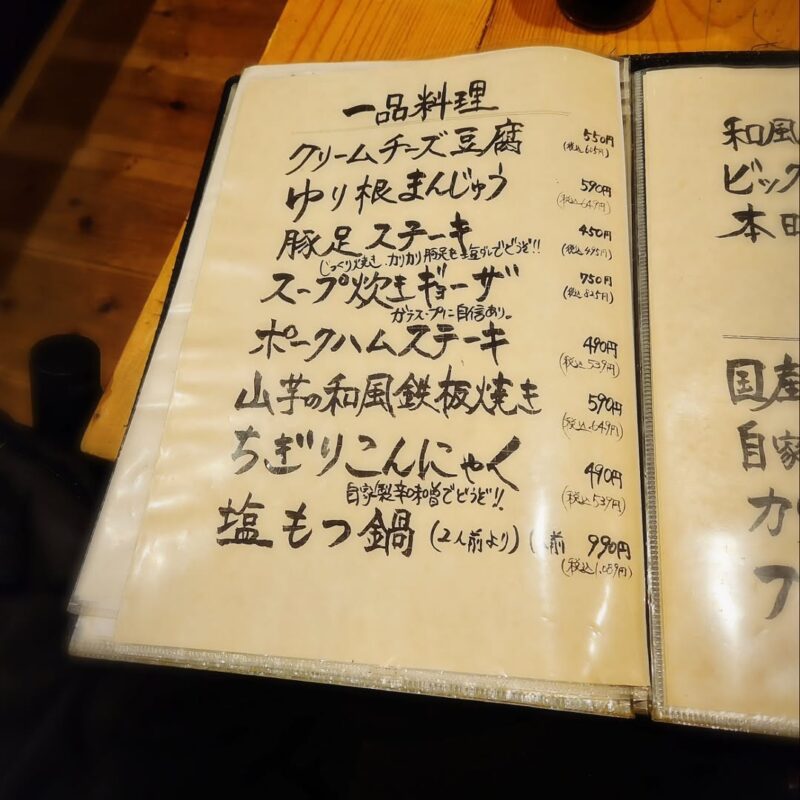 一品料理
クリームチーズ豆腐 550円
(税込605円)
ゆり根まんじゅう 590円
(税込649円)
豚足ステーキ 450円
じっくり焼き、カリカリ豚足を塩ダレでどうぞ!! (税込495円)
スープ炊きギョーザ 750円
ガラスープに自信あり。 (税込825円)
ポークハムステーキ 490円
(税込539円)
山芋の和風鉄板焼き 590円
(税込649円)
ちぎりこんにゃく 490円
自家製辛味噌でどうぞ!! (税込539円)
塩もつ鍋(2人前より) 人前 990円
(税込1,089円)
和風
ビック
本日
国産
自家
カ
フ